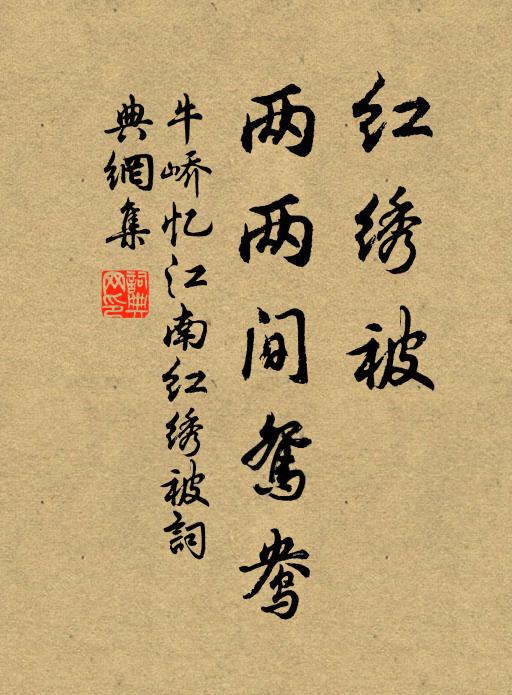 红绣被
两两间鸳鸯
牛峤忆江南红绣被詞
典網集
詞典网印